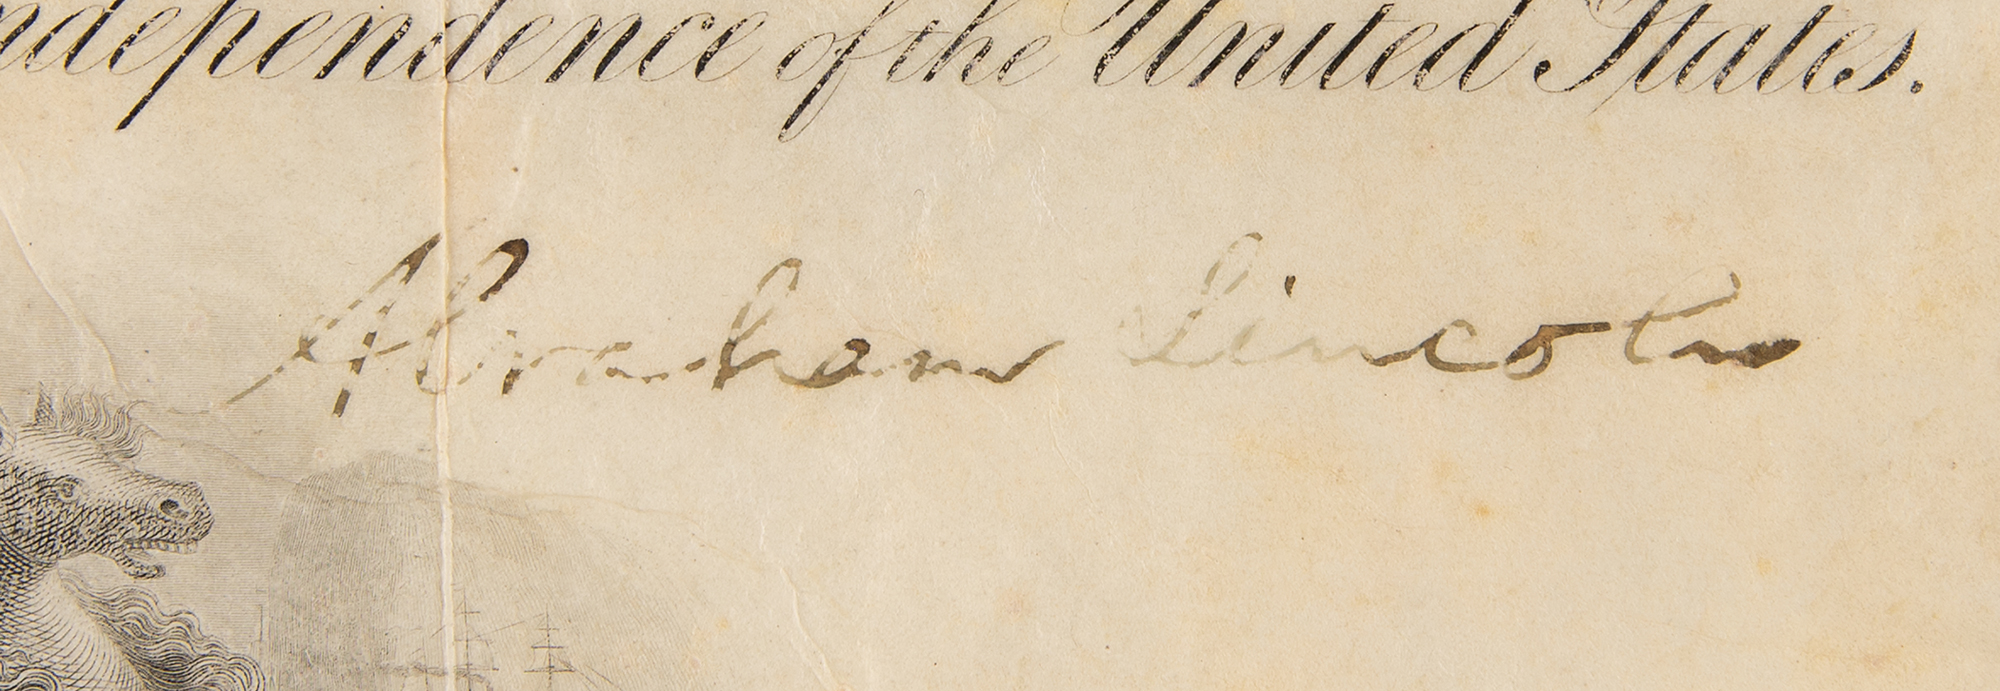 ndependence of the United States.
Abraham Lincoln